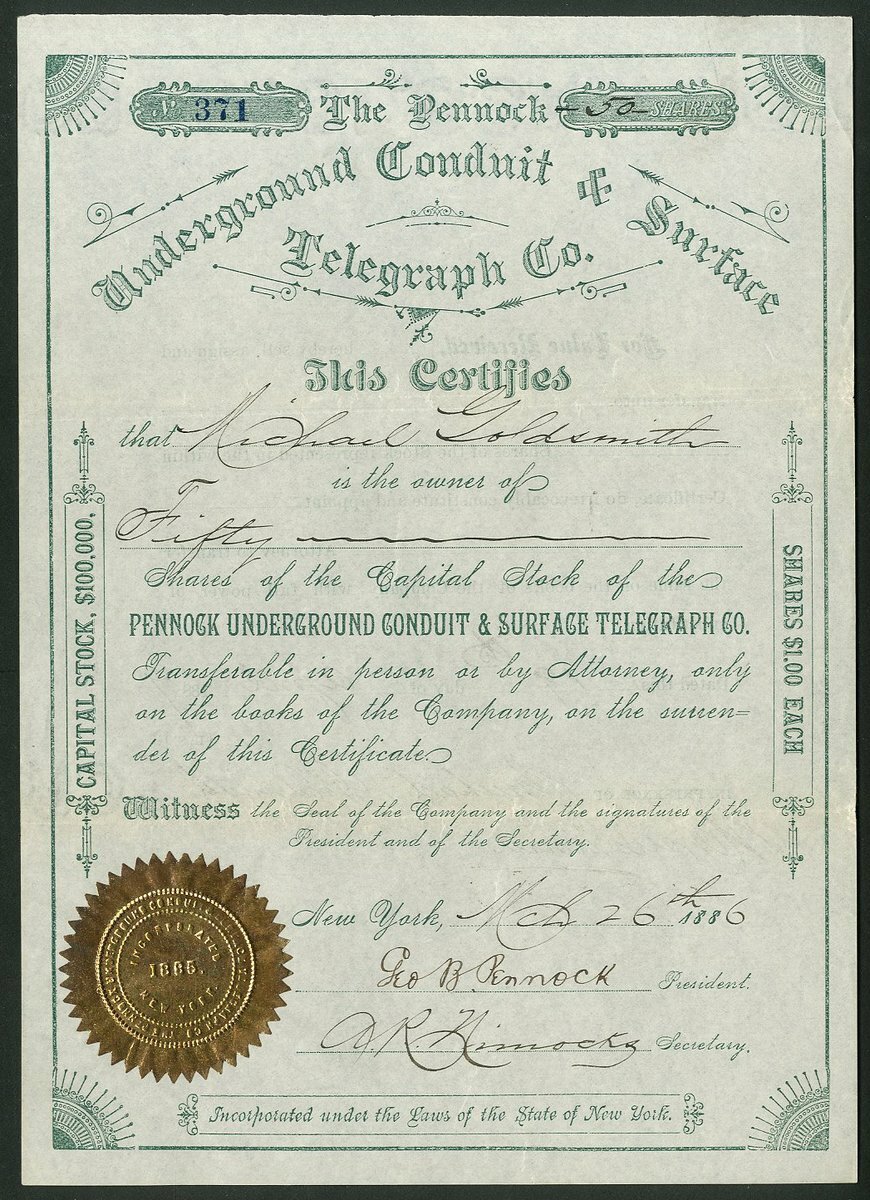 No 371 The Pennock - 50 - SHARES
Underground Conduit & Surface
Telegraph Co.
This Certifies
that Michael Goldsmith
is the owner of
Fifty
Shares of the Capital Stock of the
PENNOCK UNDERGROUND CONDUIT & SURFACE TELEGRAPH CO.
Transferable in person or by Attorney, only
on the books of the Company, on the surren=
der of this Certificate.
Witness the Seal of the Company and the signatures of the
President and of the Secretary.
New York, Mch 26th 1886
Geo B. Pennock President.
A.R. Nimocks Secretary.
Incorporated under the Laws of the State of New York.
CAPITAL STOCK, $100,000.
SHARES $1.00 EACH
INCORPORATED
1885.
NEW YORK